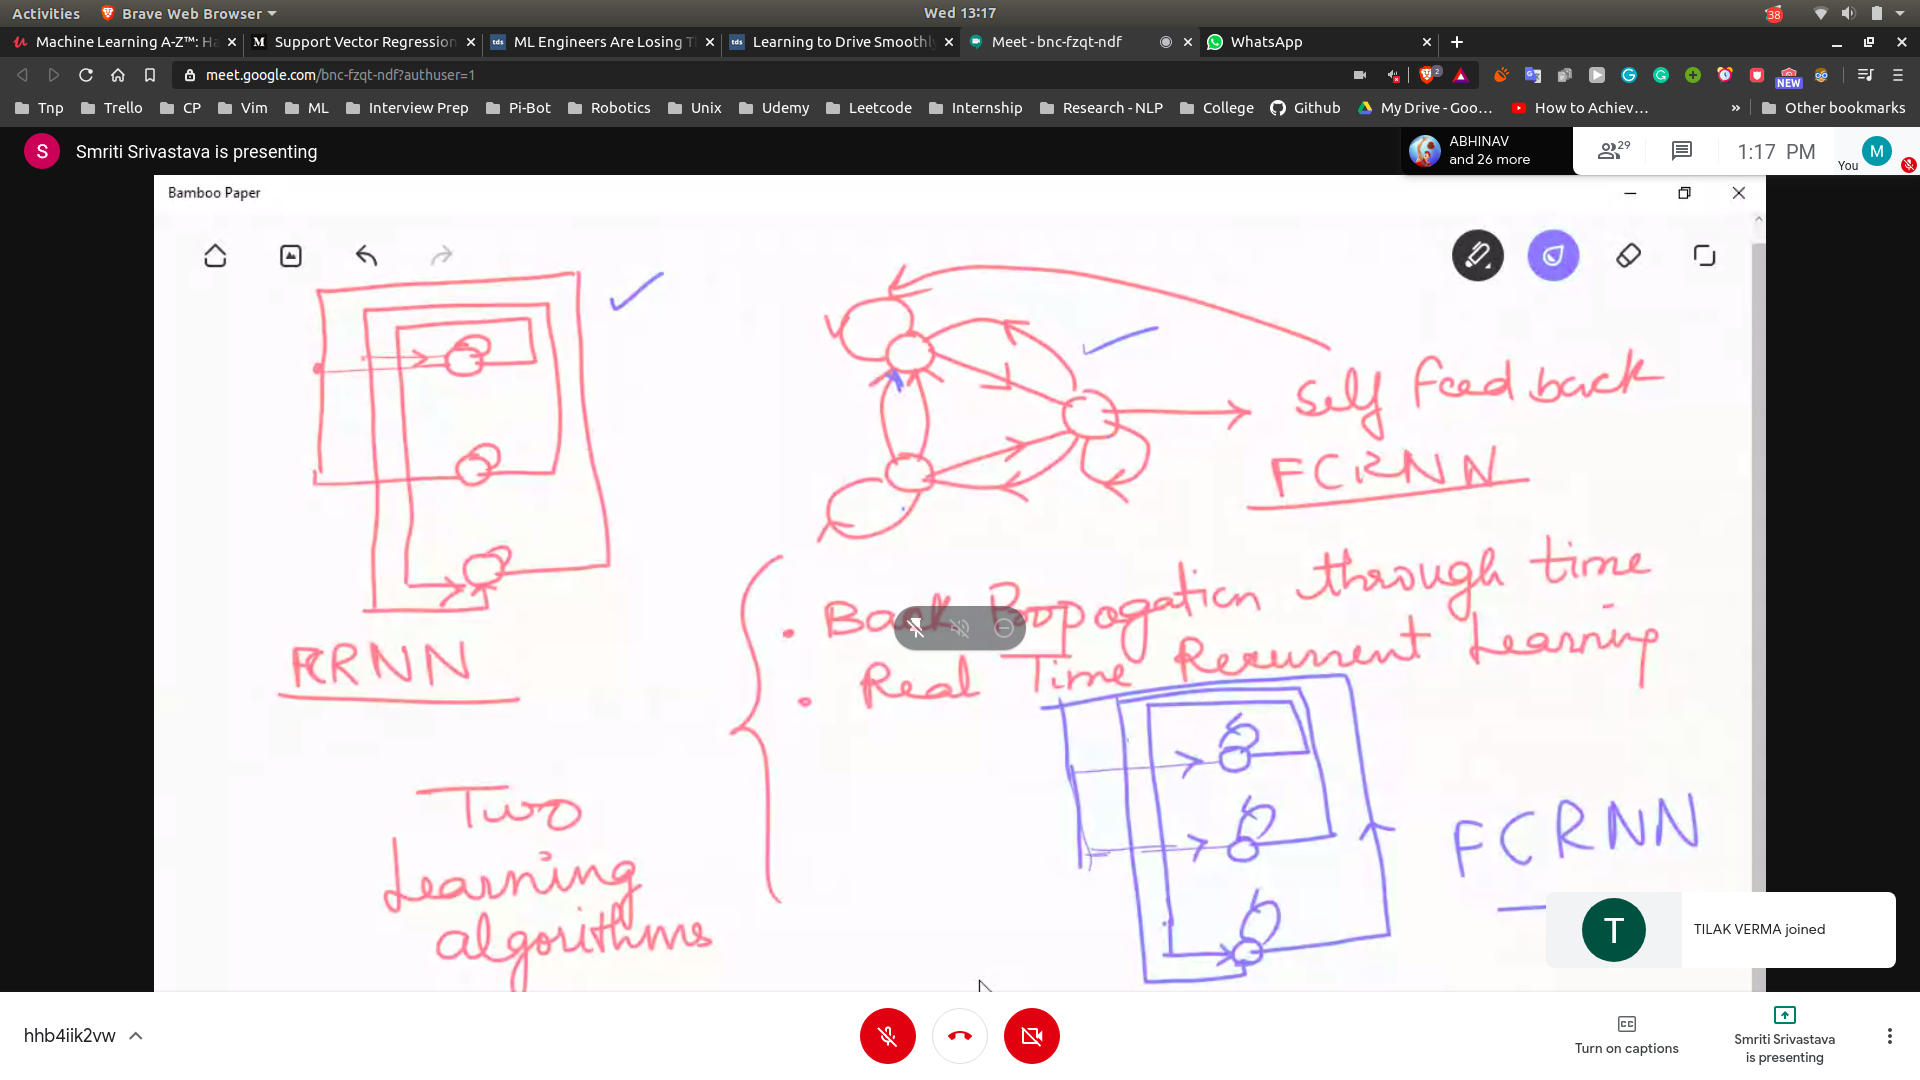 Activities Brave Web Browser Wed 13:17 38
Machine Learning A-Z™: Ha Support Vector Regression ML Engineers Are Losing T Learning to Drive Smoothly Meet - bnc-fzqt-ndf WhatsApp
meet.google.com/bnc-fzqt-ndf?authuser=1 2 NEW
Tnp Trello CP Vim ML Interview Prep Pi-Bot Robotics Unix Udemy Leetcode Internship Research - NLP College Github My Drive - Goo... How to Achiev... » Other bookmarks
S Smriti Srivastava is presenting
ABHINAV
and 26 more
29
1:17 PM
You M
Bamboo Paper
Self Feed back
FCRNN
RRNN
• Back Propogation through time
• Real Time Recurrent Learning
Two
Learning
algorithms
FCRNN
T TILAK VERMA joined
hhb4iik2vw
Turn on captions
Smriti Srivastava
is presenting